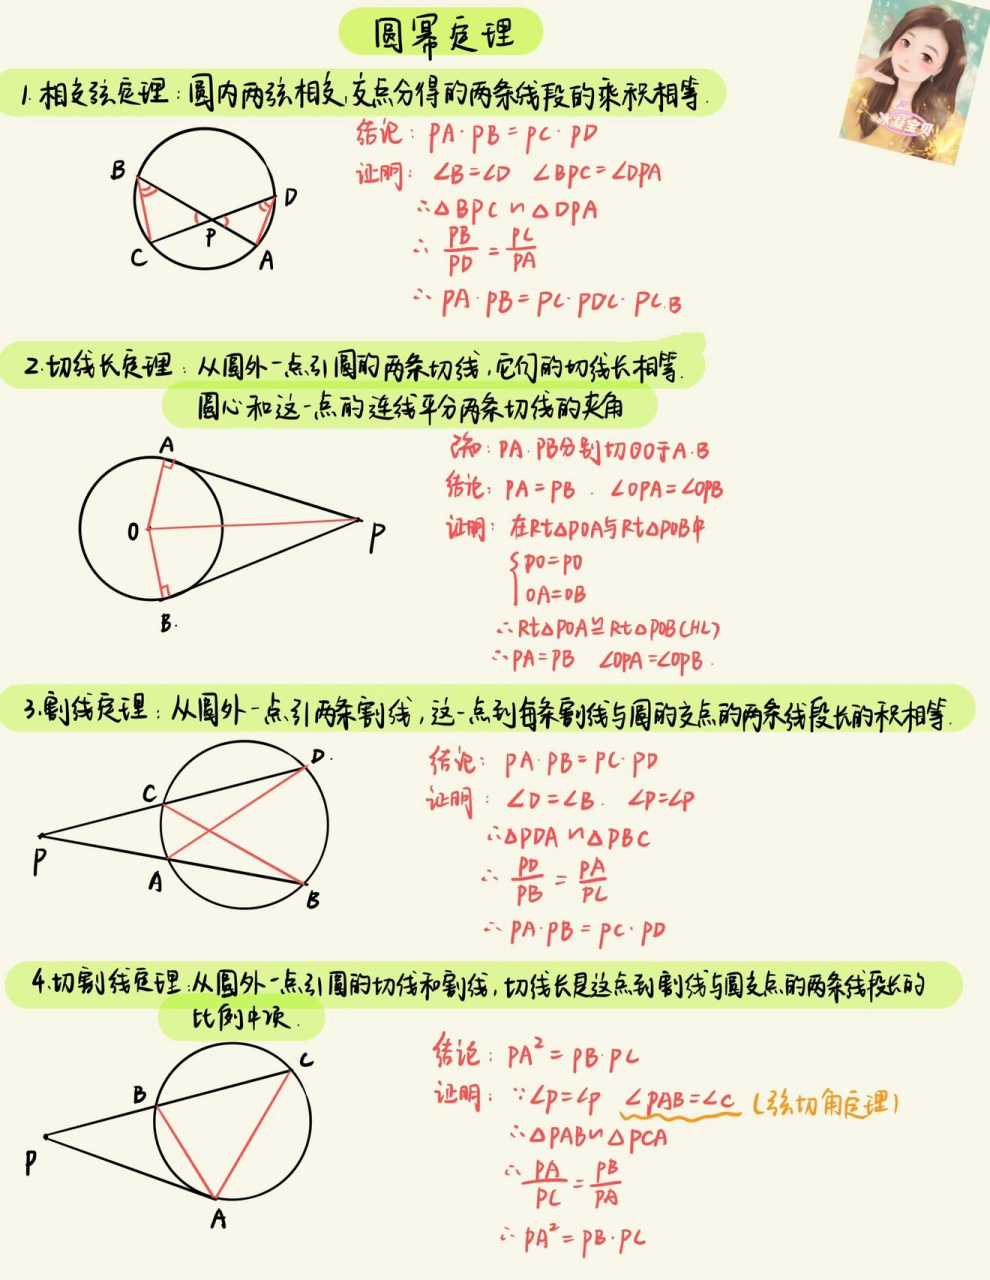 圆幂定理
冰凝宝贝
1.相交弦定理:圆内两弦相交,交点分得的两条线段的乘积相等.
结论: PA·PB=PC·PD
证明: ∠B=∠D ∠BPC=∠DPA
∴△BPC∽△DPA
∴ PB/PD = PC/PA
∴ PA·PB=PC·PDC·PC.B
B
D
P
C
A
2.切线长定理:从圆外一点引圆的两条切线,它们的切线长相等.
圆心和这一点的连线平分两条切线的夹角
已知:PA.PB分别切⊙O于A.B
结论: PA=PB . ∠OPA=∠OPB
证明: 在Rt△POA与Rt△POB中
PO=PO
OA=OB
∴Rt△POA≌Rt△POB(HL)
∴PA=PB ∠OPA=∠OPB.
A
O
P
B.
3.割线定理:从圆外一点引两条割线,这一点到每条割线与圆的交点的两条线段长的积相等.
结论: PA·PB=PC·PD
证明: ∠D=∠B. ∠P=∠P
∴△PDA∽△PBC
∴ PD/PB = PA/PC
∴ PA·PB=PC·PD
D.
C
P
A
B
4.切割线定理:从圆外一点引圆的切线和割线,切线长是这点到割线与圆交点的两条线段长的
比例中项.
结论: PA²=PB·PC
证明: ∵∠P=∠P ∠PAB=∠C (弦切角定理)
∴△PAB∽△PCA
∴ PA/PC = PB/PA
∴ PA²=PB·PC
C
B
P
A